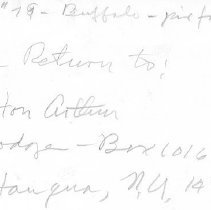 #19 - Buffalo - pix fo
- Return to!
ton Arthur
odger - Box 1016
tauqua, N.Y. 14